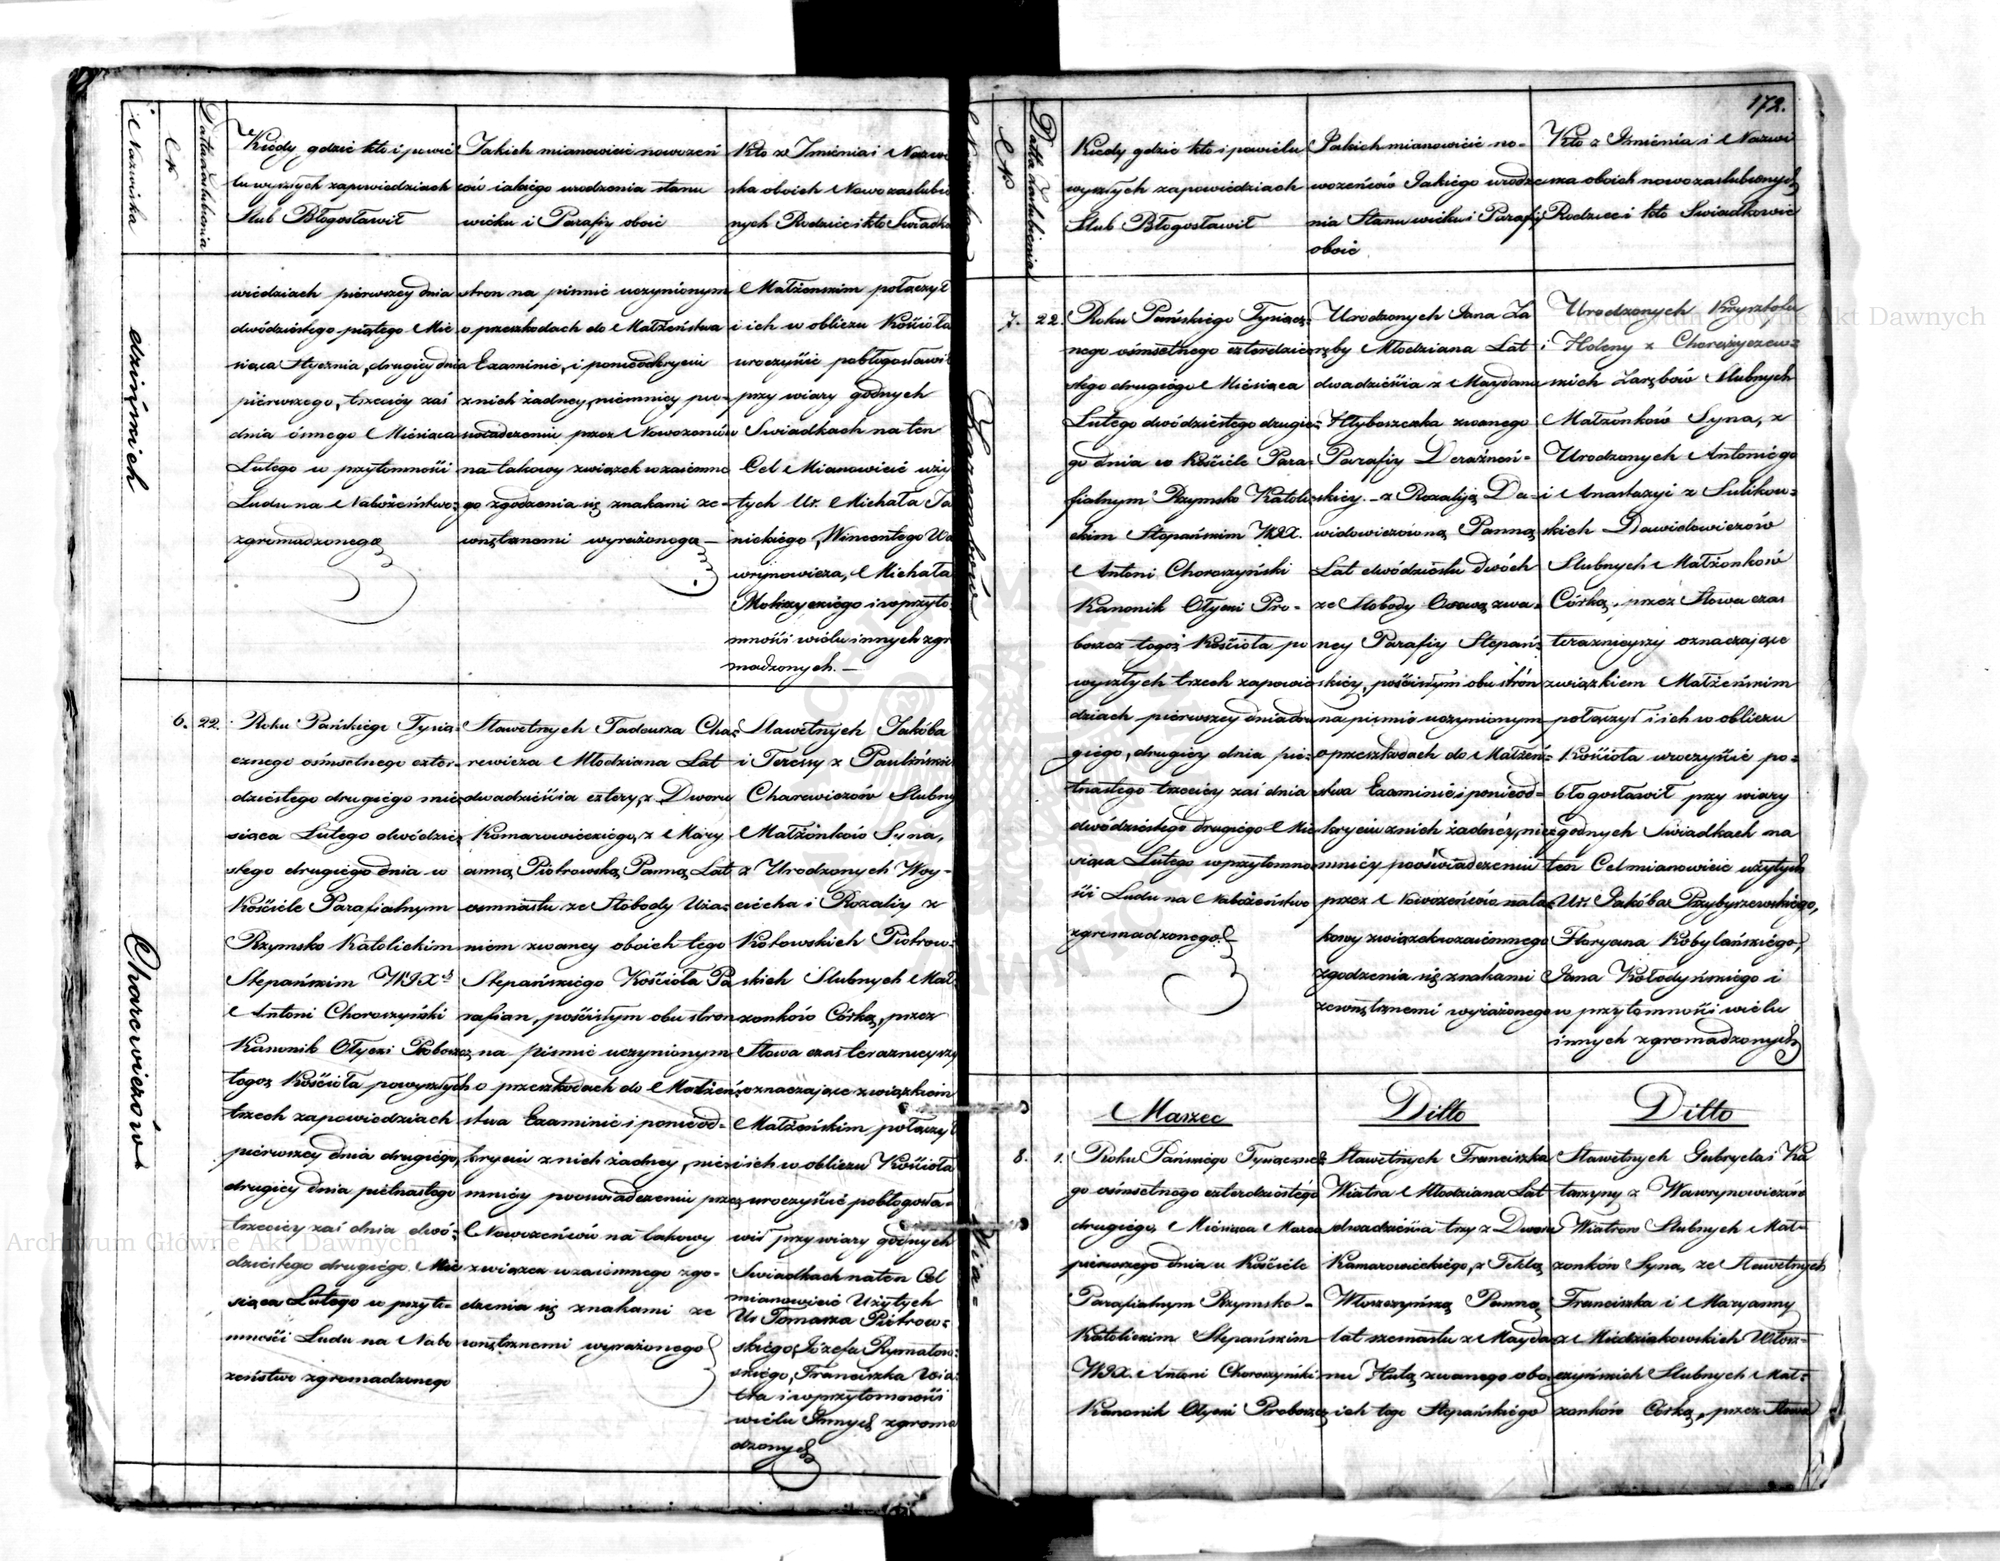 Nazwiska
N
Datta zaślubienia
Kiedy gdzie kto i po wie
lu wyszłych zapowiedziach
Slub Błogosławił
Jakich mianowicie nowożeń
ców iakiego urodzenia stanu
wieku i Parafiy obоie
Kto z Imienia i Nazwi
ska oboich Nowo zaslubio
nych Rodzice i kto Swiadko
dzińskich
wiedziach pierwszey dnia
dwódziestego piątego Mie
siąca Stycznia, drugiey dnia
pierwszego, trzeciey zaś
dnia ósmego Miesiąca
Lutego w przytomności
Ludu na Nabożeństwo
zgromadzonego
stron na pismie uczynionym
o przeszkodach do Małżeństwa
Examinie, i ponieodkryciu
z nich żadney, niemniey po-
swiadczeniu przez Nowożeńców
na takowy związek wzaiemne
go zgodzenia się znakami ze-
wnętrznemi wyrażonego
Małżenskim połączył
i ich w obliczu Kościoła
uroczyście pobłogosławił
przy wiary godnych
Swiadkach na ten
Cel Mianowicie uży
tych Ur. Michała Ja
nickiego, Wincentego Wa
wrynowicza, Michała
Mokrzyckiego i w przyto
mności wielu innych zgro
madzonych.
6. 22.
Charewiczów
Roku Pańskiego Tysią-
cznego ośmsetnego czter-
dziestego drugiego mie-
siąca Lutego dwódzie-
stego drugiego dnia w
Kościele Parafialnym
Rzymsko Katolickim
Stepańskim WJX
Antoni Choroszyński
Kanonik Ołycki Proboszcz
togoż Kościoła po wyszłych
trzech zapowiedziach
pierwszey dnia drugiego,
drugiey dnia pietnastego
trzeciey zaś dnia dwó-
dziestego drugiego Mie
siąca Lutego w przyto-
mności Ludu na Nabo
żeństwo zgromadzonego
Sławetnych Tadeusza Cha-
rewicza Młodziana Lat
dwadzieścia cztery, z Dworu
Komarowieckiego, z Mary
anną Piotrowską Panną Lat
osmnastu ze Słobody Uża-
niem zwaney oboich tego
Stepańskiego Kościoła Pa
rafian, pościsłym obu stron
na pismie uczynionym
o przeszkodach do Małżeń-
stwa Examinie i ponieod-
kryciu z nich żadney, nie-
mniey poswiadczeniu przez
Nowożeńców na takowy
związek wzaiemnego zgo-
dzenia się znakami ze
wnętrznemi wyrażonego
Sławetnych Jakóba
i Teressy z Paulińskich
Charewiczów Slubnych
Małżonków Syna,
z Urodzonych Woy-
ciecha i Rozaliy z
Kotowskich Piotrow-
skich Slubnych Mał-
żonków Córką, przez
Słowa czas teraznieyszy
oznaczaiące związkiem
Małżeńskim połączył
i ich w obliczu Kościoła
uroczyście pobłogosła-
wił przy wiary godnych
Swiadkach na ten Cel
mianowicie Użytych
Ur Tomasza Piotrow-
skiego, Józefa Rymatow-
skiego, Franciszka Wia-
tra i w przytomności
wielu Innych zgroma
dzonych
172.
Nazwiska
N
Datta zaslubienia
Kiedy gdzie kto i po wielu
wyszłych zapowiedziach
Slub Błogosławił
Jakich mianowicie no-
wożeńców Jakiego urodze-
nia Stanu wieku i Parafiy
oboie
Kto z Imienia i Nazwi
ska oboich nowo zaslubionych
Rodzice i kto Swiadkowie
7. 22.
Zarembów
Roku Pańskiego Tysiącz-
nego ośmsetnego czterdzie-
stego drugiego Miesiąca
Lutego dwódziestego drugie-
go dnia w Kościele Para-
fialnym Rzymsko Katoli-
ckim Stepańskim WJX.
Antoni Choroszyński
Kanonik Ołycki Pro-
boszcz togoż Kościoła po
wyszłych trzech zapowie
dziach pierwszey dnia dru
giego, drugiey dnia pie-
tnastego trzeciey zaś dnia
dwódziestego drugiego Mie
siąca Lutego w przytomno
ści Ludu na Nabożeństwo
zgromadzonego.
Urodzonych Jana Za
ręby Młodziana Lat
dwadzieścia z Maydanu
Hłyboszcka zwanego
Parafiy Deraźneń-
skiey. z Rozalią Da-
widowiczowną Panną
Lat dwódziestu dwóch
ze Słobody Osową zwa-
ney Parafiy Stepań-
skiey, pościsłym obu strón
na pismie uczynionym
o przeszkodach do Małżeń-
stwa Examinie i ponieod-
kryciu z nich żadnéy, nie-
mniey poświadczeniu
przez Nowożeńców na ta-
kowy związek wzaiemnego
zgodzenia się znakami
zewnętrznemi wyrażonego
Urodzonych Krysztofa
i Heleny z Chorążyczew-
skich Zarębów Slubnych
Małżonków Syna, z
Urodzonych Antoniego
i Anastazyi z Sulikow-
skich Dawidowiczów
Slubnych Małżonków
Córką, przez Słowa czas
teraznieyszy oznaczaiące
związkiem Małżeńskim
połączył i ich w obliczu
Kościoła uroczyście po-
błogosławił przy wiary
godnych Swiadkach na
ten Cel mianowicie użytych
Ur. Jakóba Przybyszewskiego,
Floryana Kobylańskiego,
Jana Kołodyńskiego i
w przytomności wielu
innych zgromadzonych
Marzec
Ditto
Ditto
8. 1.
Wia-
Roku Pańskiego Tysiączne-
go ośmsetnego czterdziestégo
drugiego, Miésiąca Marca
pierwszego dnia w Kościele
Parafialnym Rzymsko-
Katolickim Stepańskim
WJX. Antoni Choroszyński
Kanonik Ołycki Proboszcz
Sławetnych Franciszka
Wiatra Młodziana Lat
dwadzieścia trzy z Dworu
Kamarowieckiégo, z Teklą
Włoszczyńską Panną
lat szesnastu z Mayda-
nu Hutą zwanego obo-
ich tego Stepańskiégo
Sławetnych Gabryela i Ka
tarzyny z Wawrynowiczów
Wiatrow Slubnych Mał-
żonków Syna, ze Sławetnych
Franciszka i Maryanny
z Miedziakowskich Włosz-
czyńskich Slubnych Mał-
żonków Córką, przez Słowa
Archiwum Główne Akt Dawnych
Archiwum Główne Akt Dawnych